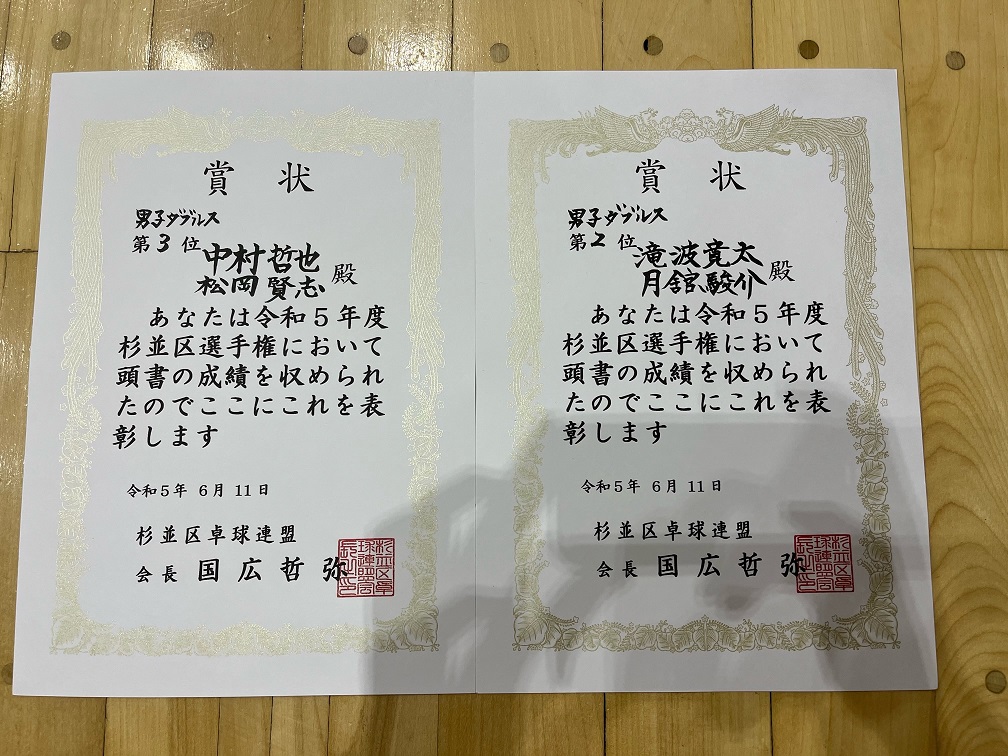 賞状
男子ダブルス
第3位
中村哲也
松岡賢志 殿
あなたは令和5年度
杉並区選手権において
頭書の成績を収められ
たのでここにこれを表
彰します
令和5年 6月 11日
杉並区卓球連盟
会長 国広哲弥
杉並区卓
球連盟会
長之印
賞状
男子ダブルス
第2位
滝波寛太
月舘駿介 殿
あなたは令和5年度
杉並区選手権において
頭書の成績を収められ
たのでここにこれを表
彰します
令和5年 6月 11日
杉並区卓球連盟
会長 国広哲弥
杉並区卓
球連盟会
長之印